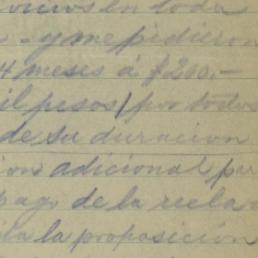 en toda
- y me pidieron
4 meses á $200.-
mil pesos/ por todos
de su duracion
adicional par
pago de la recla
la proposición